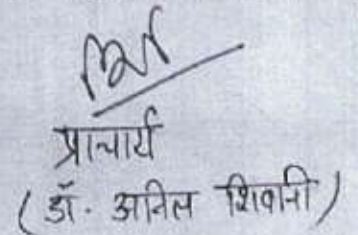 प्राचार्य
(डॉ. अनिल शिवानी)